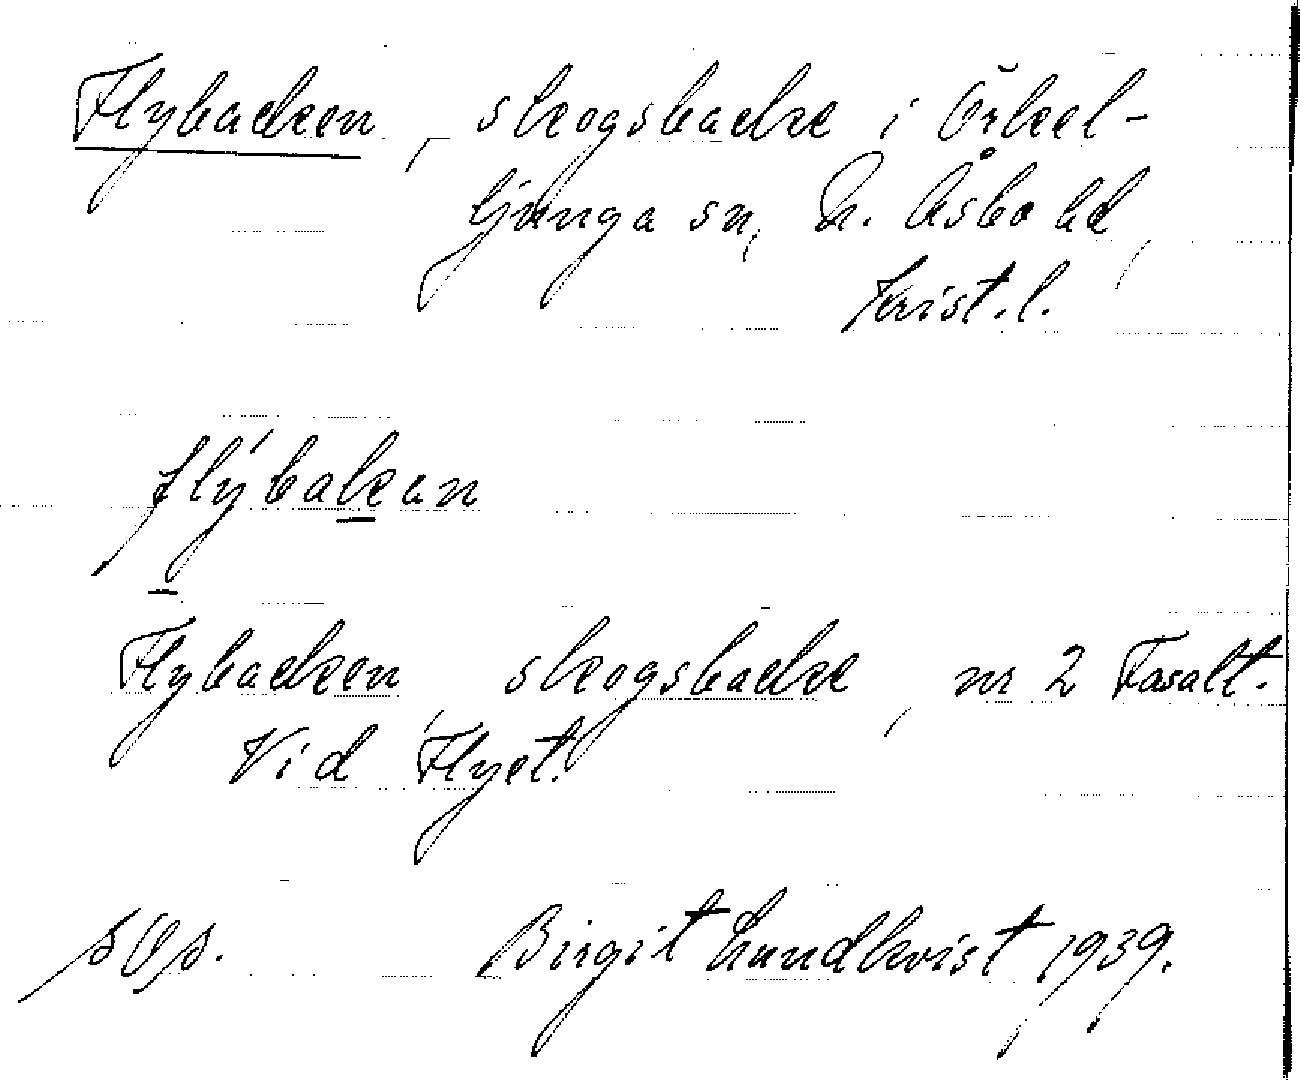 Flybacken, skogsbacke i Örkel-
ljunga sn, N. Åsbo hd,
Krist. l.
flýbakan
Flybacken, skogsbacke, nr 2 Fasalt.
Vid Flyet.
Birgit Lundkvist, 1939.